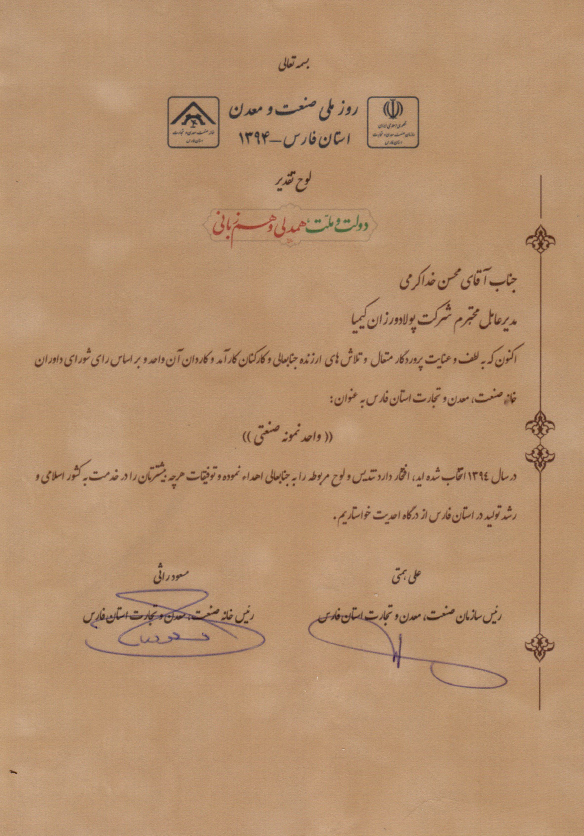 بسمه تعالی
روز ملی صنعت و معدن
استان فارس – ۱۳۹۴
لوح تقدیر
دولت و ملت، همدلی و همزبانی
جناب آقای محسن خداکرمی
مدیرعامل محترم شرکت پولادورزان کیمیا
اکنون که به لطف و عنایت پروردگار متعال و تلاش های ارزنده جنابعالی و کارکنان کارآمد و کاردان آن واحد و بر اساس رای شورای داوران
خانه صنعت، معدن و تجارت استان فارس به عنوان:
(( واحد نمونه صنعتی ))
در سال ۱۳۹٤ انتخاب شده اید، افتخار دارد تندیس و لوح مربوطه را به جنابعالی اهداء نموده و توفیقات هرچه بیشترتان را در خدمت به کشور اسلامی و
رشد تولید در استان فارس از درگاه احدیت خواستاریم.
علی همتی
رئیس سازمان صنعت، معدن و تجارت استان فارس
مسعود راثی
رئیس خانه صنعت، معدن و تجارت استان فارس